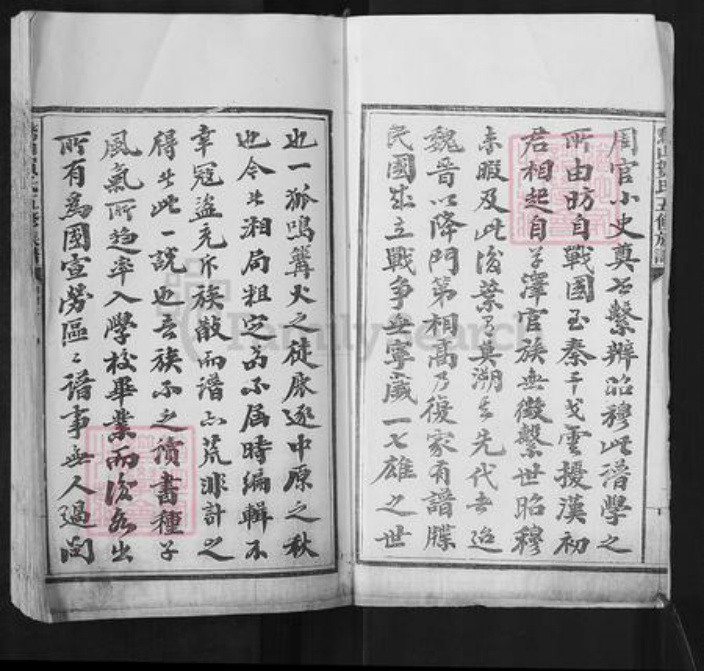 周官小史奠世繫辨昭穆此譜學之
所由昉自戰國至秦干戈雲擾漢初
君相起自草澤官族無徵繫世昭穆
未暇及此後葉子莫溯其先代去迨
魏晉以降門第相高乃復家有譜牒
民國成立戰爭無寧歲一七雄之世
也一狐鳴篝火之徒脉逐中原之秋
也今者湘局粗定尚不屆時編輯不
幸冠盜充斥族散而譜亦荒非計之
得者此一說也吾族不乏讀書種子
風氣所趨率入學校畢業而後各出
所有為國宣勞區區譜事無人過問
五修族譜
FamilySearch